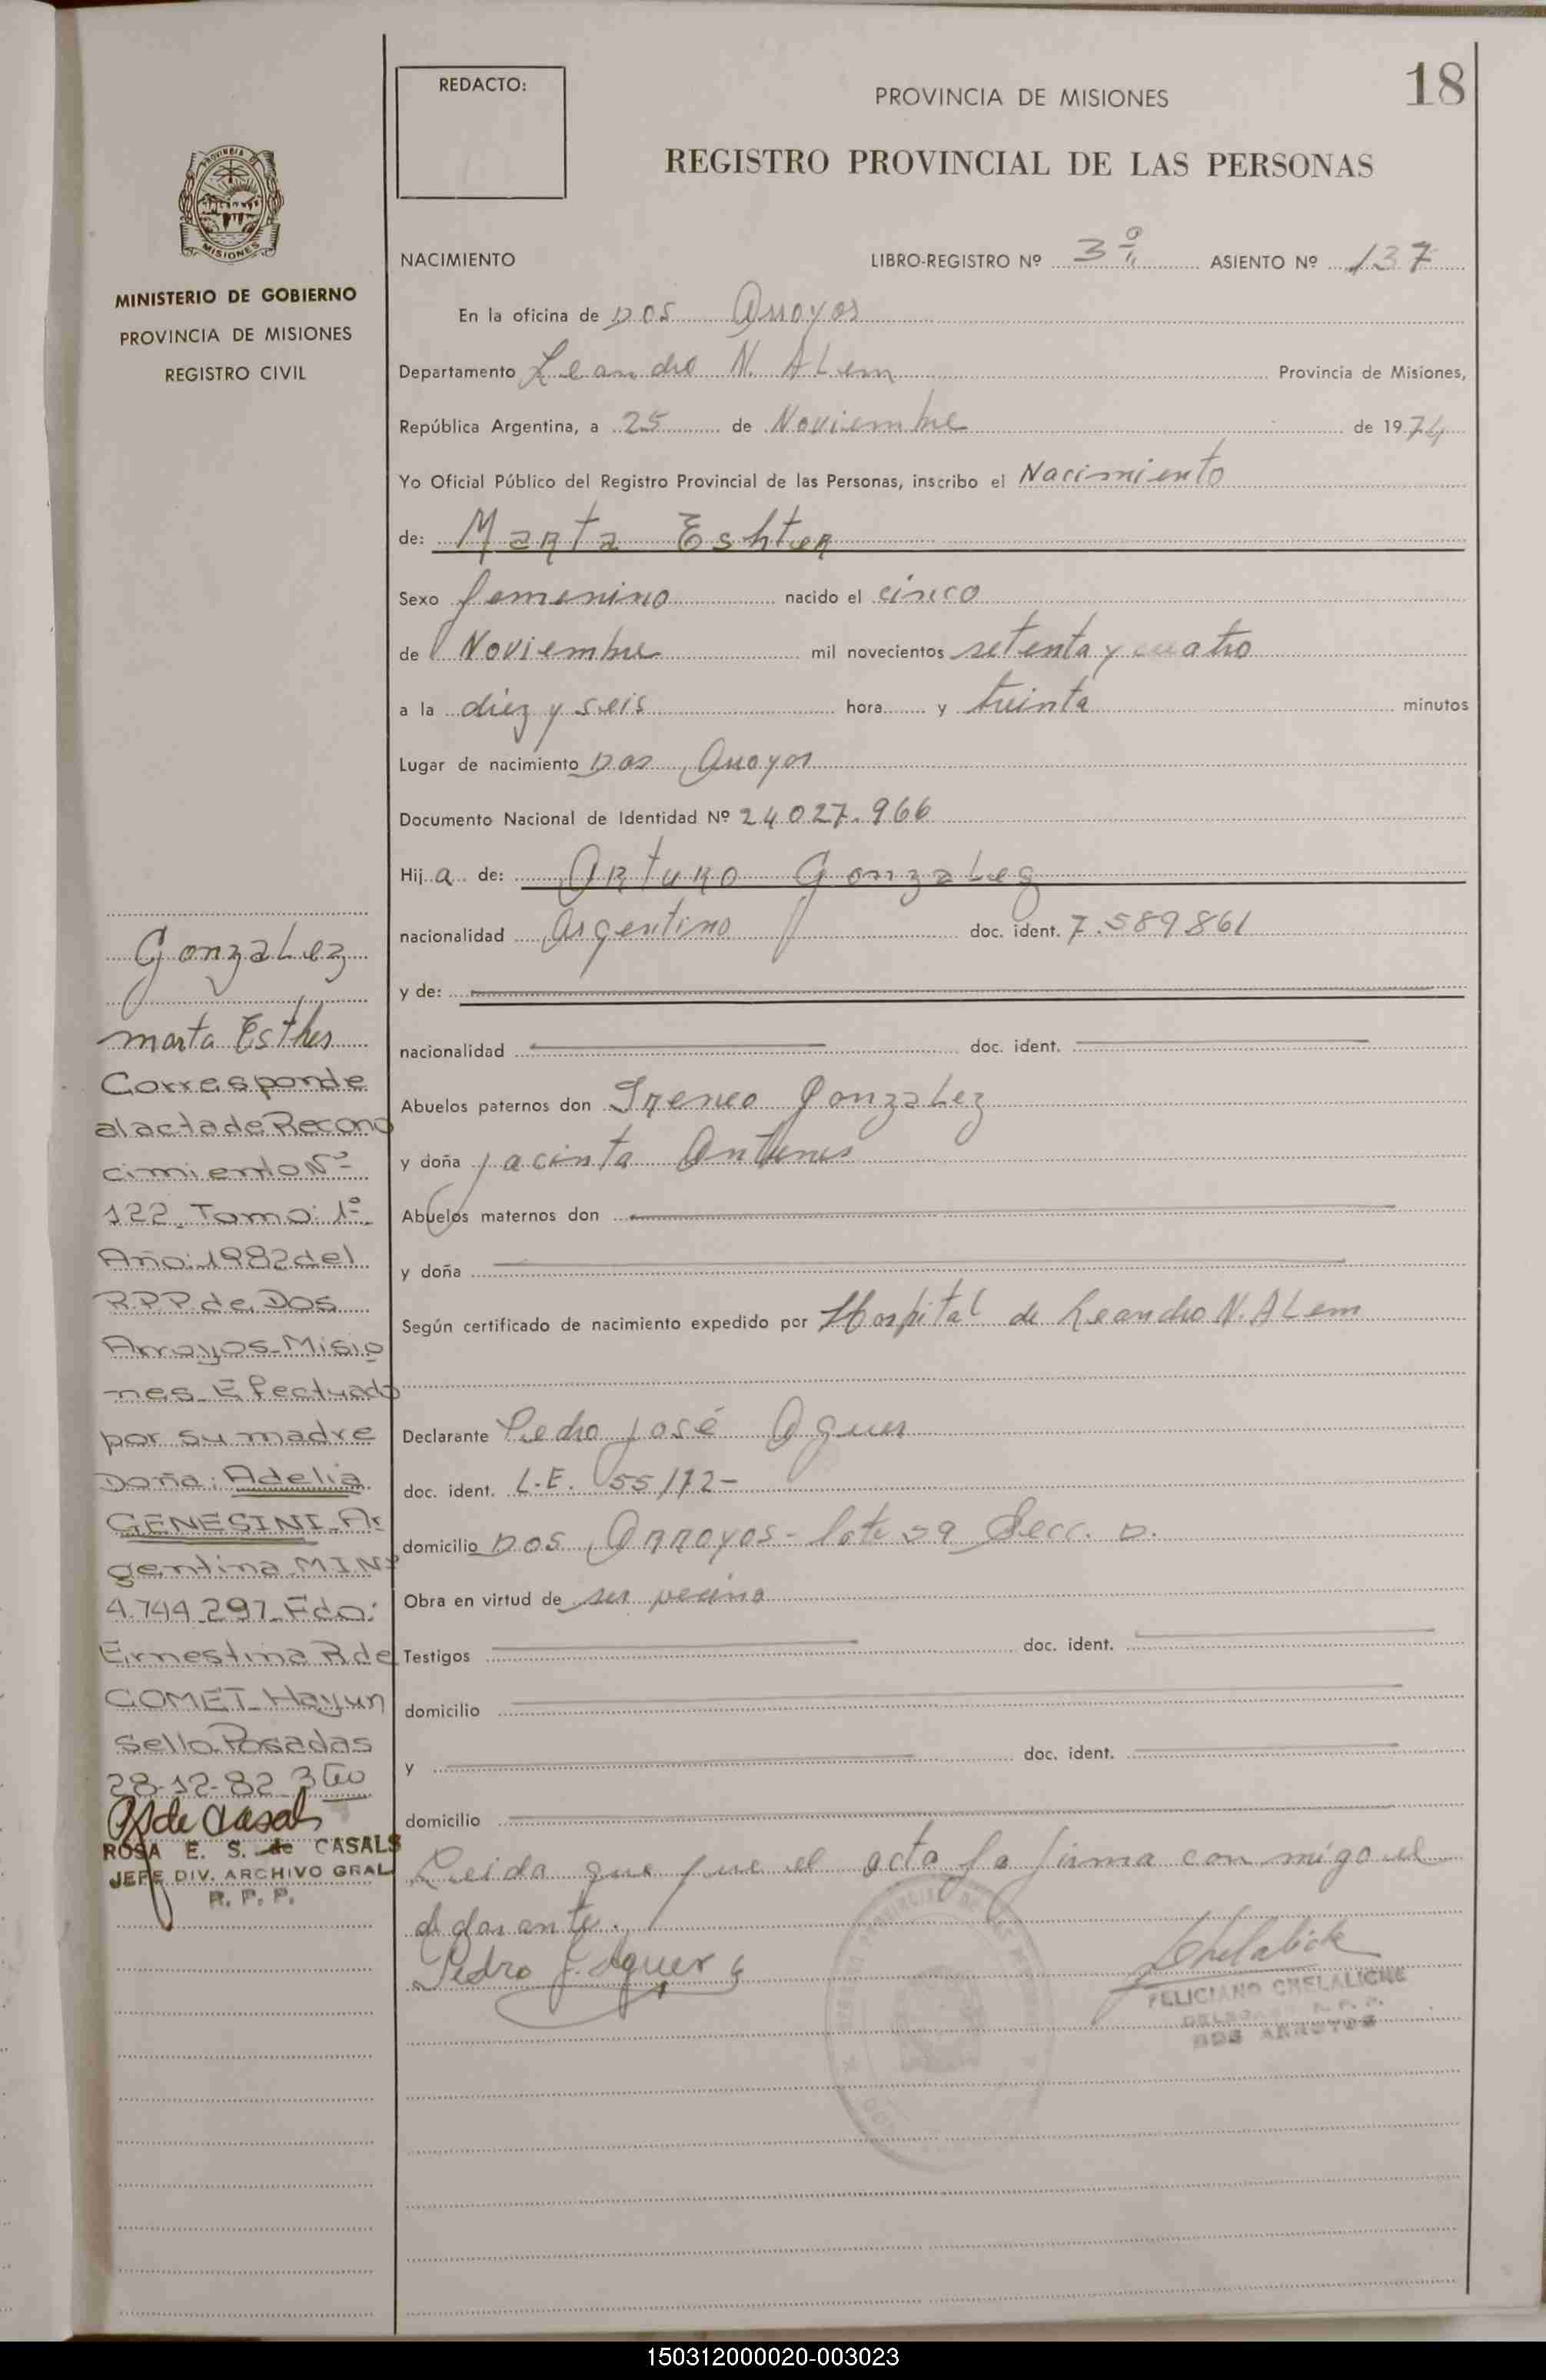 18
REDACTO:
PROVINCIA DE MISIONES
REGISTRO PROVINCIAL DE LAS PERSONAS
PROVINCIA DE
MISIONES
MINISTERIO DE GOBIERNO
PROVINCIA DE MISIONES
REGISTRO CIVIL
NACIMIENTO LIBRO-REGISTRO Nº 3º ASIENTO Nº 137
En la oficina de Dos Arroyos
Departamento Leandro N. ALem Provincia de Misiones,
República Argentina, a 25 de Noviembre de 1974
Yo Oficial Público del Registro Provincial de las Personas, inscribo el Nacimiento
de: Marta Eshter
Sexo femenino nacido el cinco
de Noviembre mil novecientos setenta y cuatro
a la diez y seis hora y treinta minutos
Lugar de nacimiento Dos Arroyos
Documento Nacional de Identidad Nº 24.027.966
Hij a de: Arturo Gonzalez
nacionalidad Argentino doc. ident. 7.589.861
y de:
nacionalidad doc. ident.
Abuelos paternos don Ireneo Gonzalez
y doña jacinta Antunes
Abuelos maternos don
y doña
Según certificado de nacimiento expedido por Hospital de Leandro N. ALem
Declarante Pedro josé
doc. ident. L.E. 55/72-
domicilio Dos Arroyos - lote Secc. D.
Obra en virtud de ser vecino
Testigos doc. ident.
domicilio
y doc. ident.
domicilio
Leida que fue el acta la firma con migo el
declarante.
Pedro J.
FELICIANO CHELALICHE
R. P. P.
DOS ARROYOS
Gonzalez
marta Esther
Corresponde
al acta de Recono
cimiento Nº
122. Tomo: 1º
Año: 1982 del
R.P.P. de Dos
Arroyos-Misio
nes. Efectuado
por su madre
Doña: Adelia
GENESINI. Ar
gentina. M.I.Nº
4.744.297. Fdo:
Ernestina R. de
GOMET. Hay un
sello. Posadas
28-12-82
ROSA E. S. de CASALS
JEFE DIV. ARCHIVO GRAL
R. P. P.
150312000020-003023